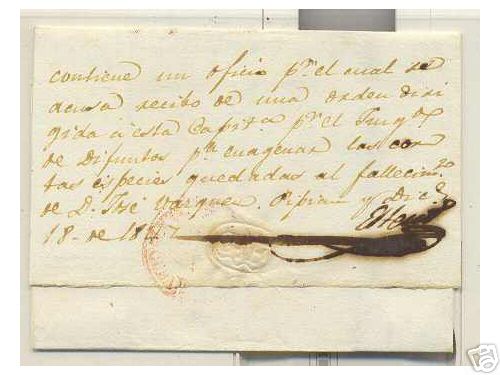 contiene un oficio pr. el cual se
acusa recibo de una orden diri
gida á esta Capita. pr. el Juzgo.
de Difuntos pa. enagenar las cor
tas especies quedadas al fallecimto.
de D. José Vazquez. Pipian y Dice.
18 de 18